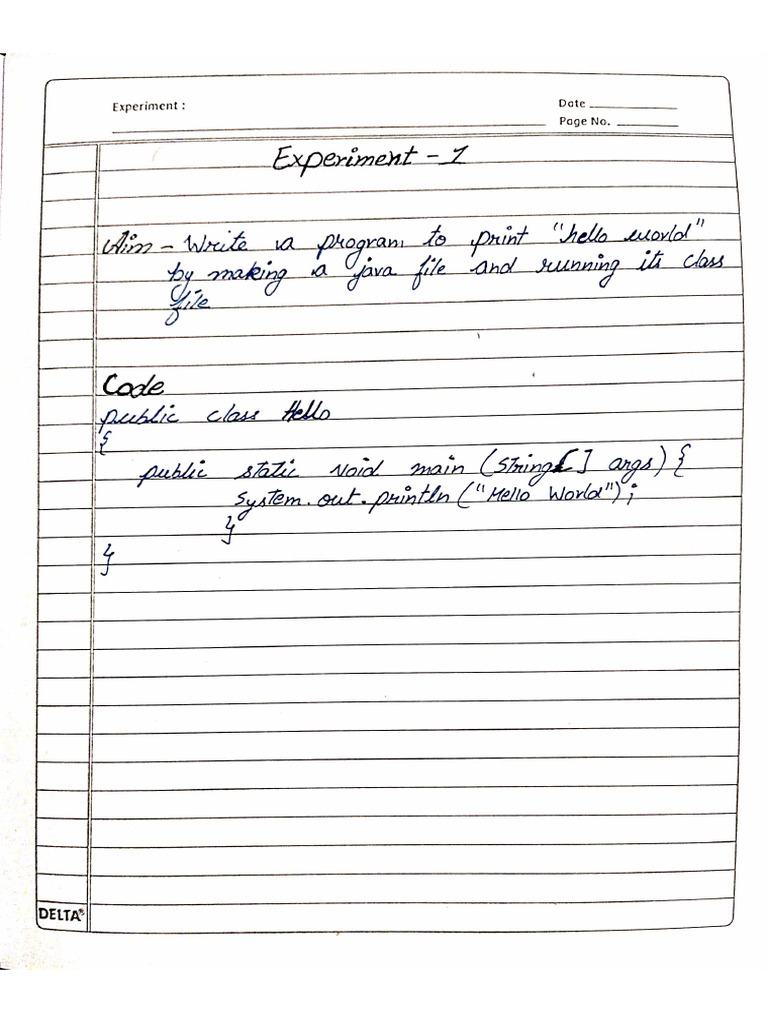 Experiment :
Date
Page No.
Experiment - 1
Aim - Write a program to print "hello world"
by making a java file and running its class
file
Code
public class Hello
{
public static void main (string[] args) {
system.out.println ("Hello World");
}
}
DELTA®